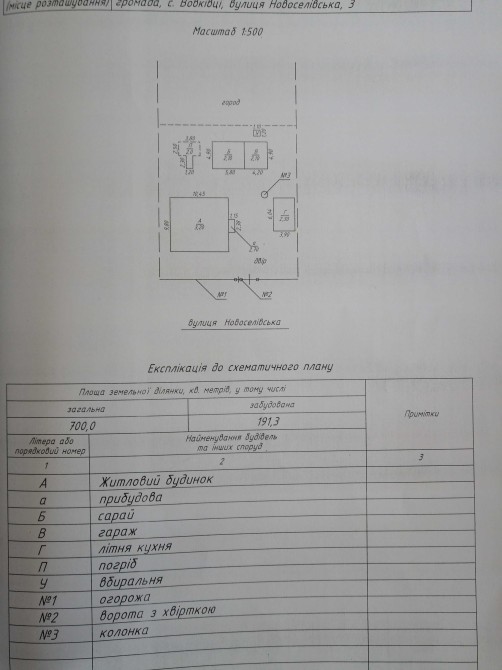 (місце розташування) громада, с. Вовківці, вулиця Новоселівська, 3
Масштаб 1:500
город
1,15
У
3,80
2,20
П
2,0
2,38
1,20
4,90
Б
2,70
5,80
В
2,70
4,20
4,90
№3
10,45
9,80
А
3,20
1,15
2,38
а
2,70
6,04
Г
2,30
3,90
двір
№1
№2
вулиця Новоселівська
Експлікація до схематичного плану
Площа земельної ділянки, кв. метрів, у тому числі
загальна
забудована
Примітки
700,0
191,3
Літера або порядковий номер
Найменування будівель та інших споруд
1
2
3
А Житловий будинок
а прибудова
Б сарай
В гараж
Г літня кухня
П погріб
У вбиральня
№1 огорожа
№2 ворота з хвірткою
№3 колонка